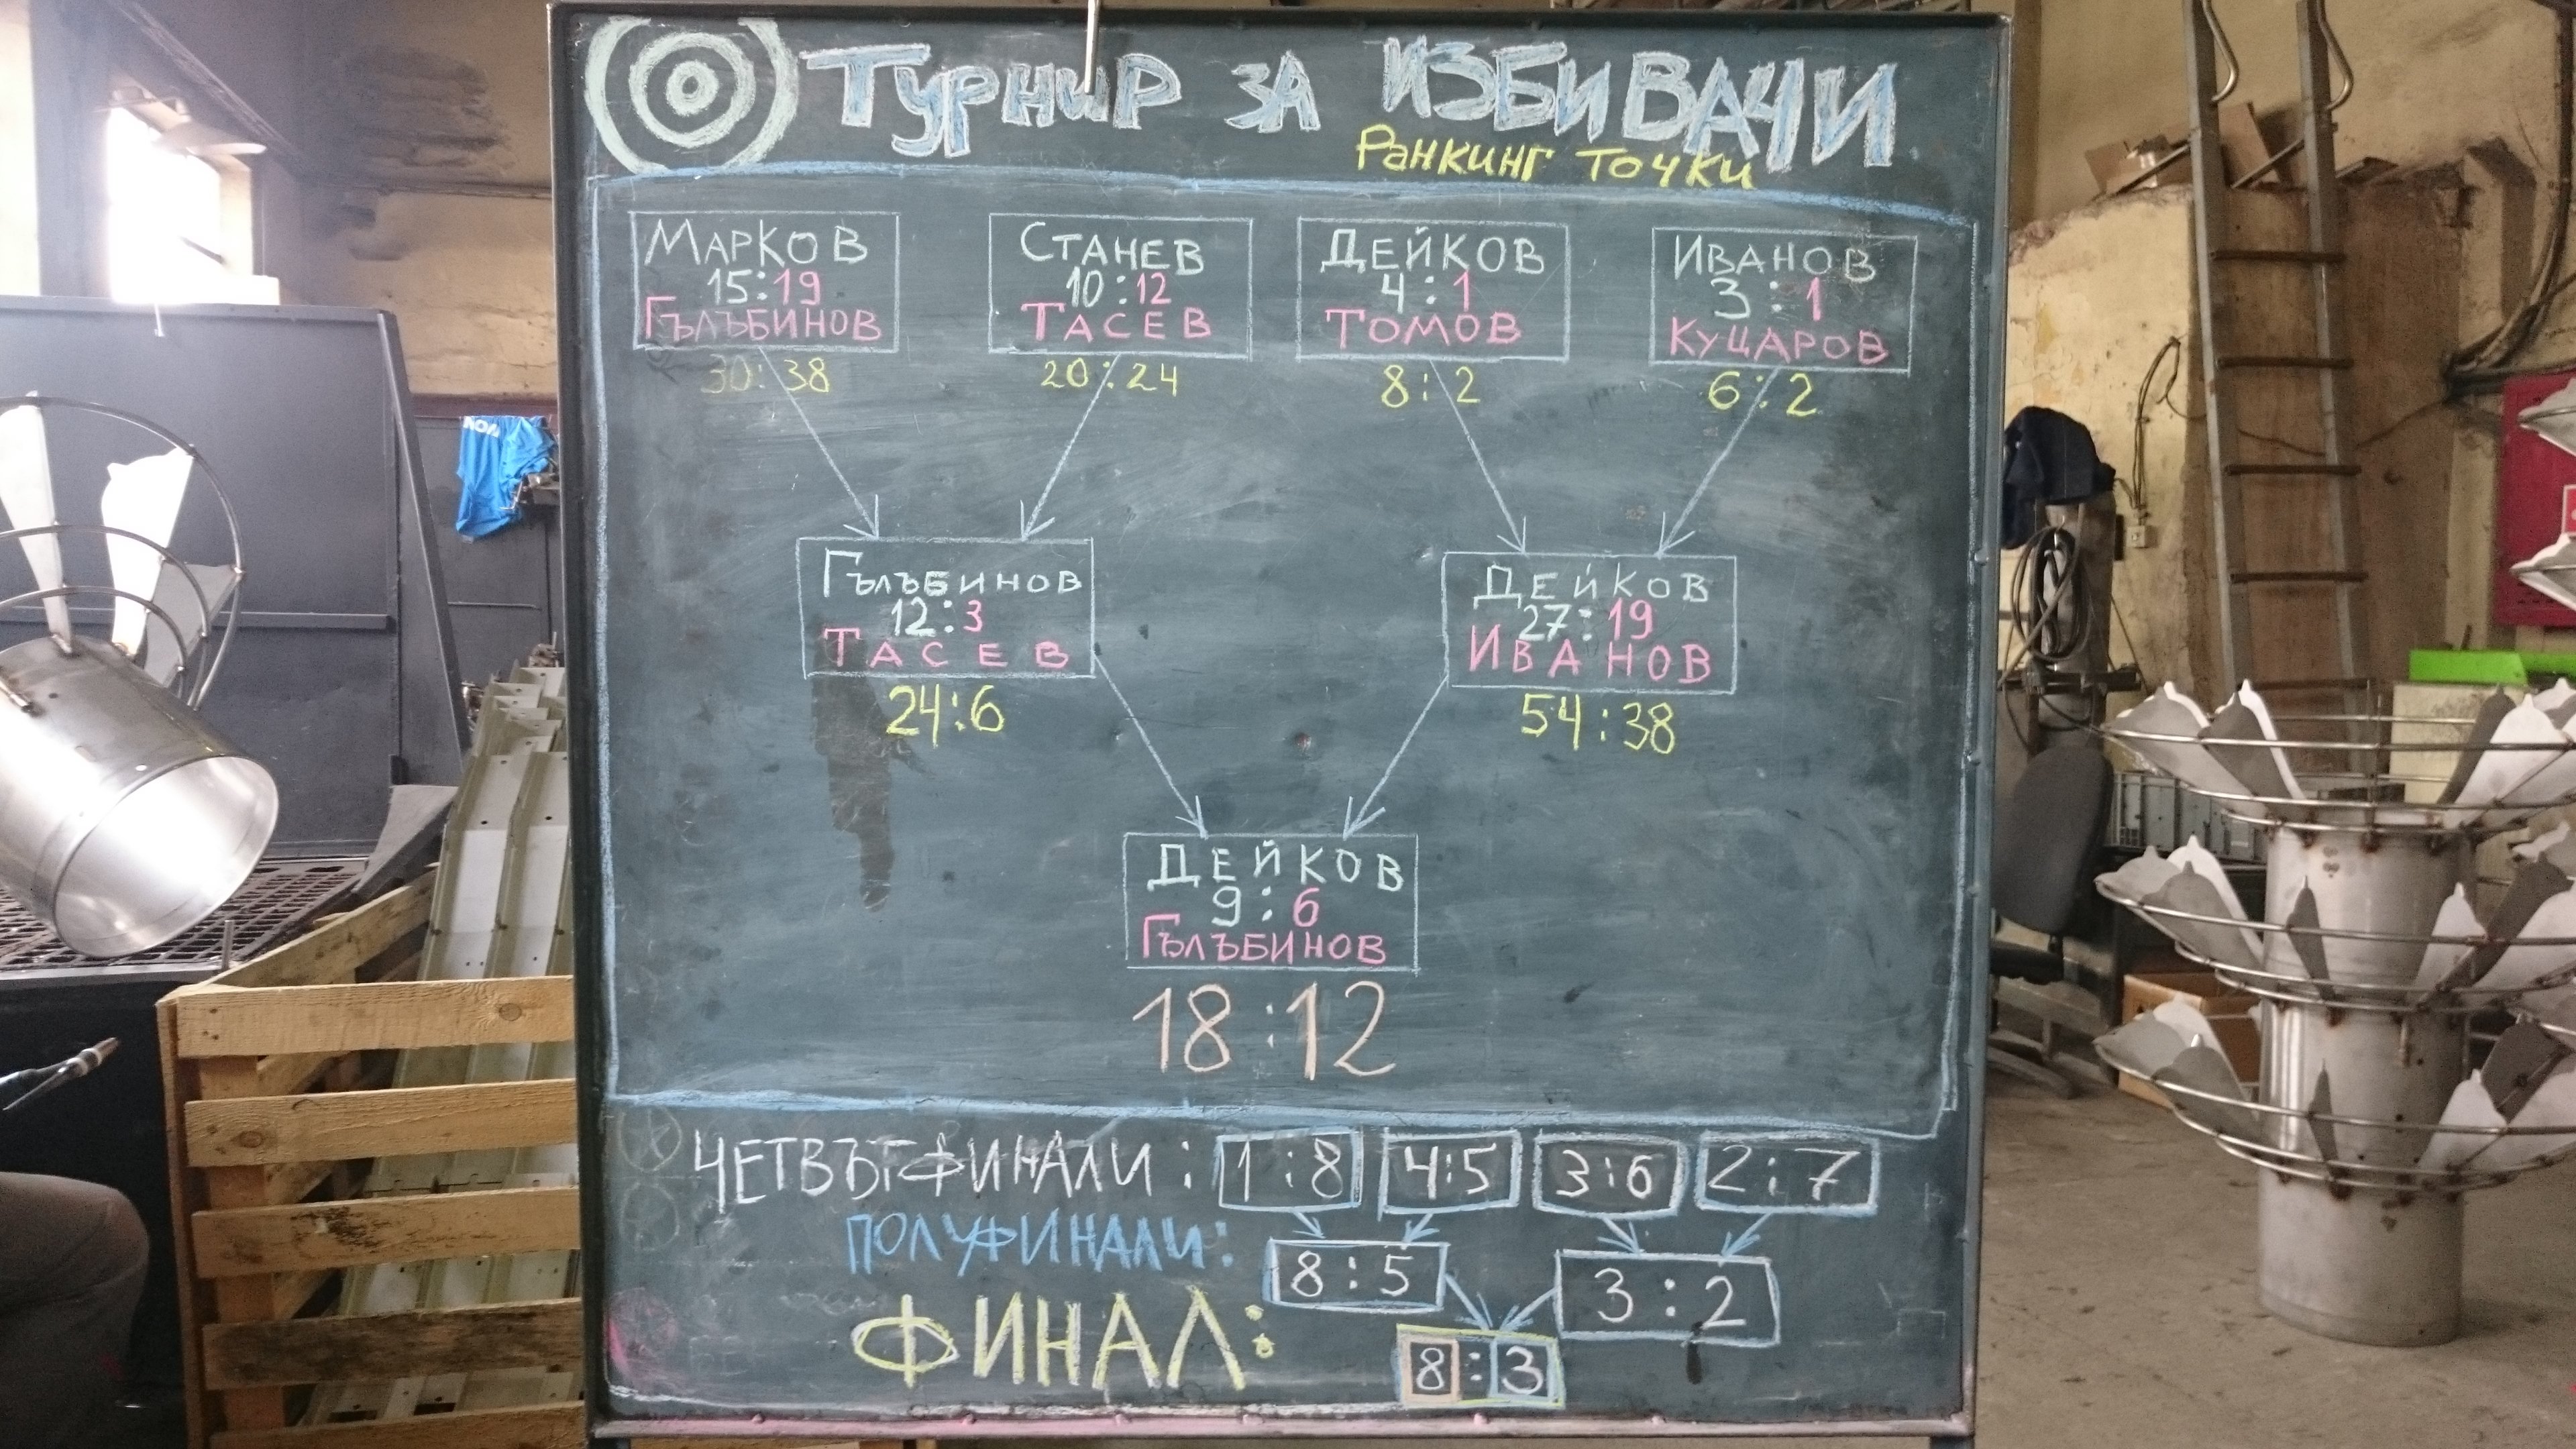 Турнир за ИЗБИВАЧИ
Ранкинг точки
МАРКОВ
15:19
ГЪЛЪБИНОВ
30:38
СТАНЕВ
10:12
ТАСЕВ
20:24
ДЕЙКОВ
4:1
ТОМОВ
8:2
ИВАНОВ
3:1
КУЦАРОВ
6:2
ГЪЛЪБИНОВ
12:3
ТАСЕВ
24:6
ДЕЙКОВ
27:19
ИВАНОВ
54:38
ДЕЙКОВ
9:6
ГЪЛЪБИНОВ
18:12
ЧЕТВЪТФИНАЛИ: 1:8 4:5 3:6 2:7
ПОЛУФИНАЛИ: 8:5 3:2
ФИНАЛ: 8:3